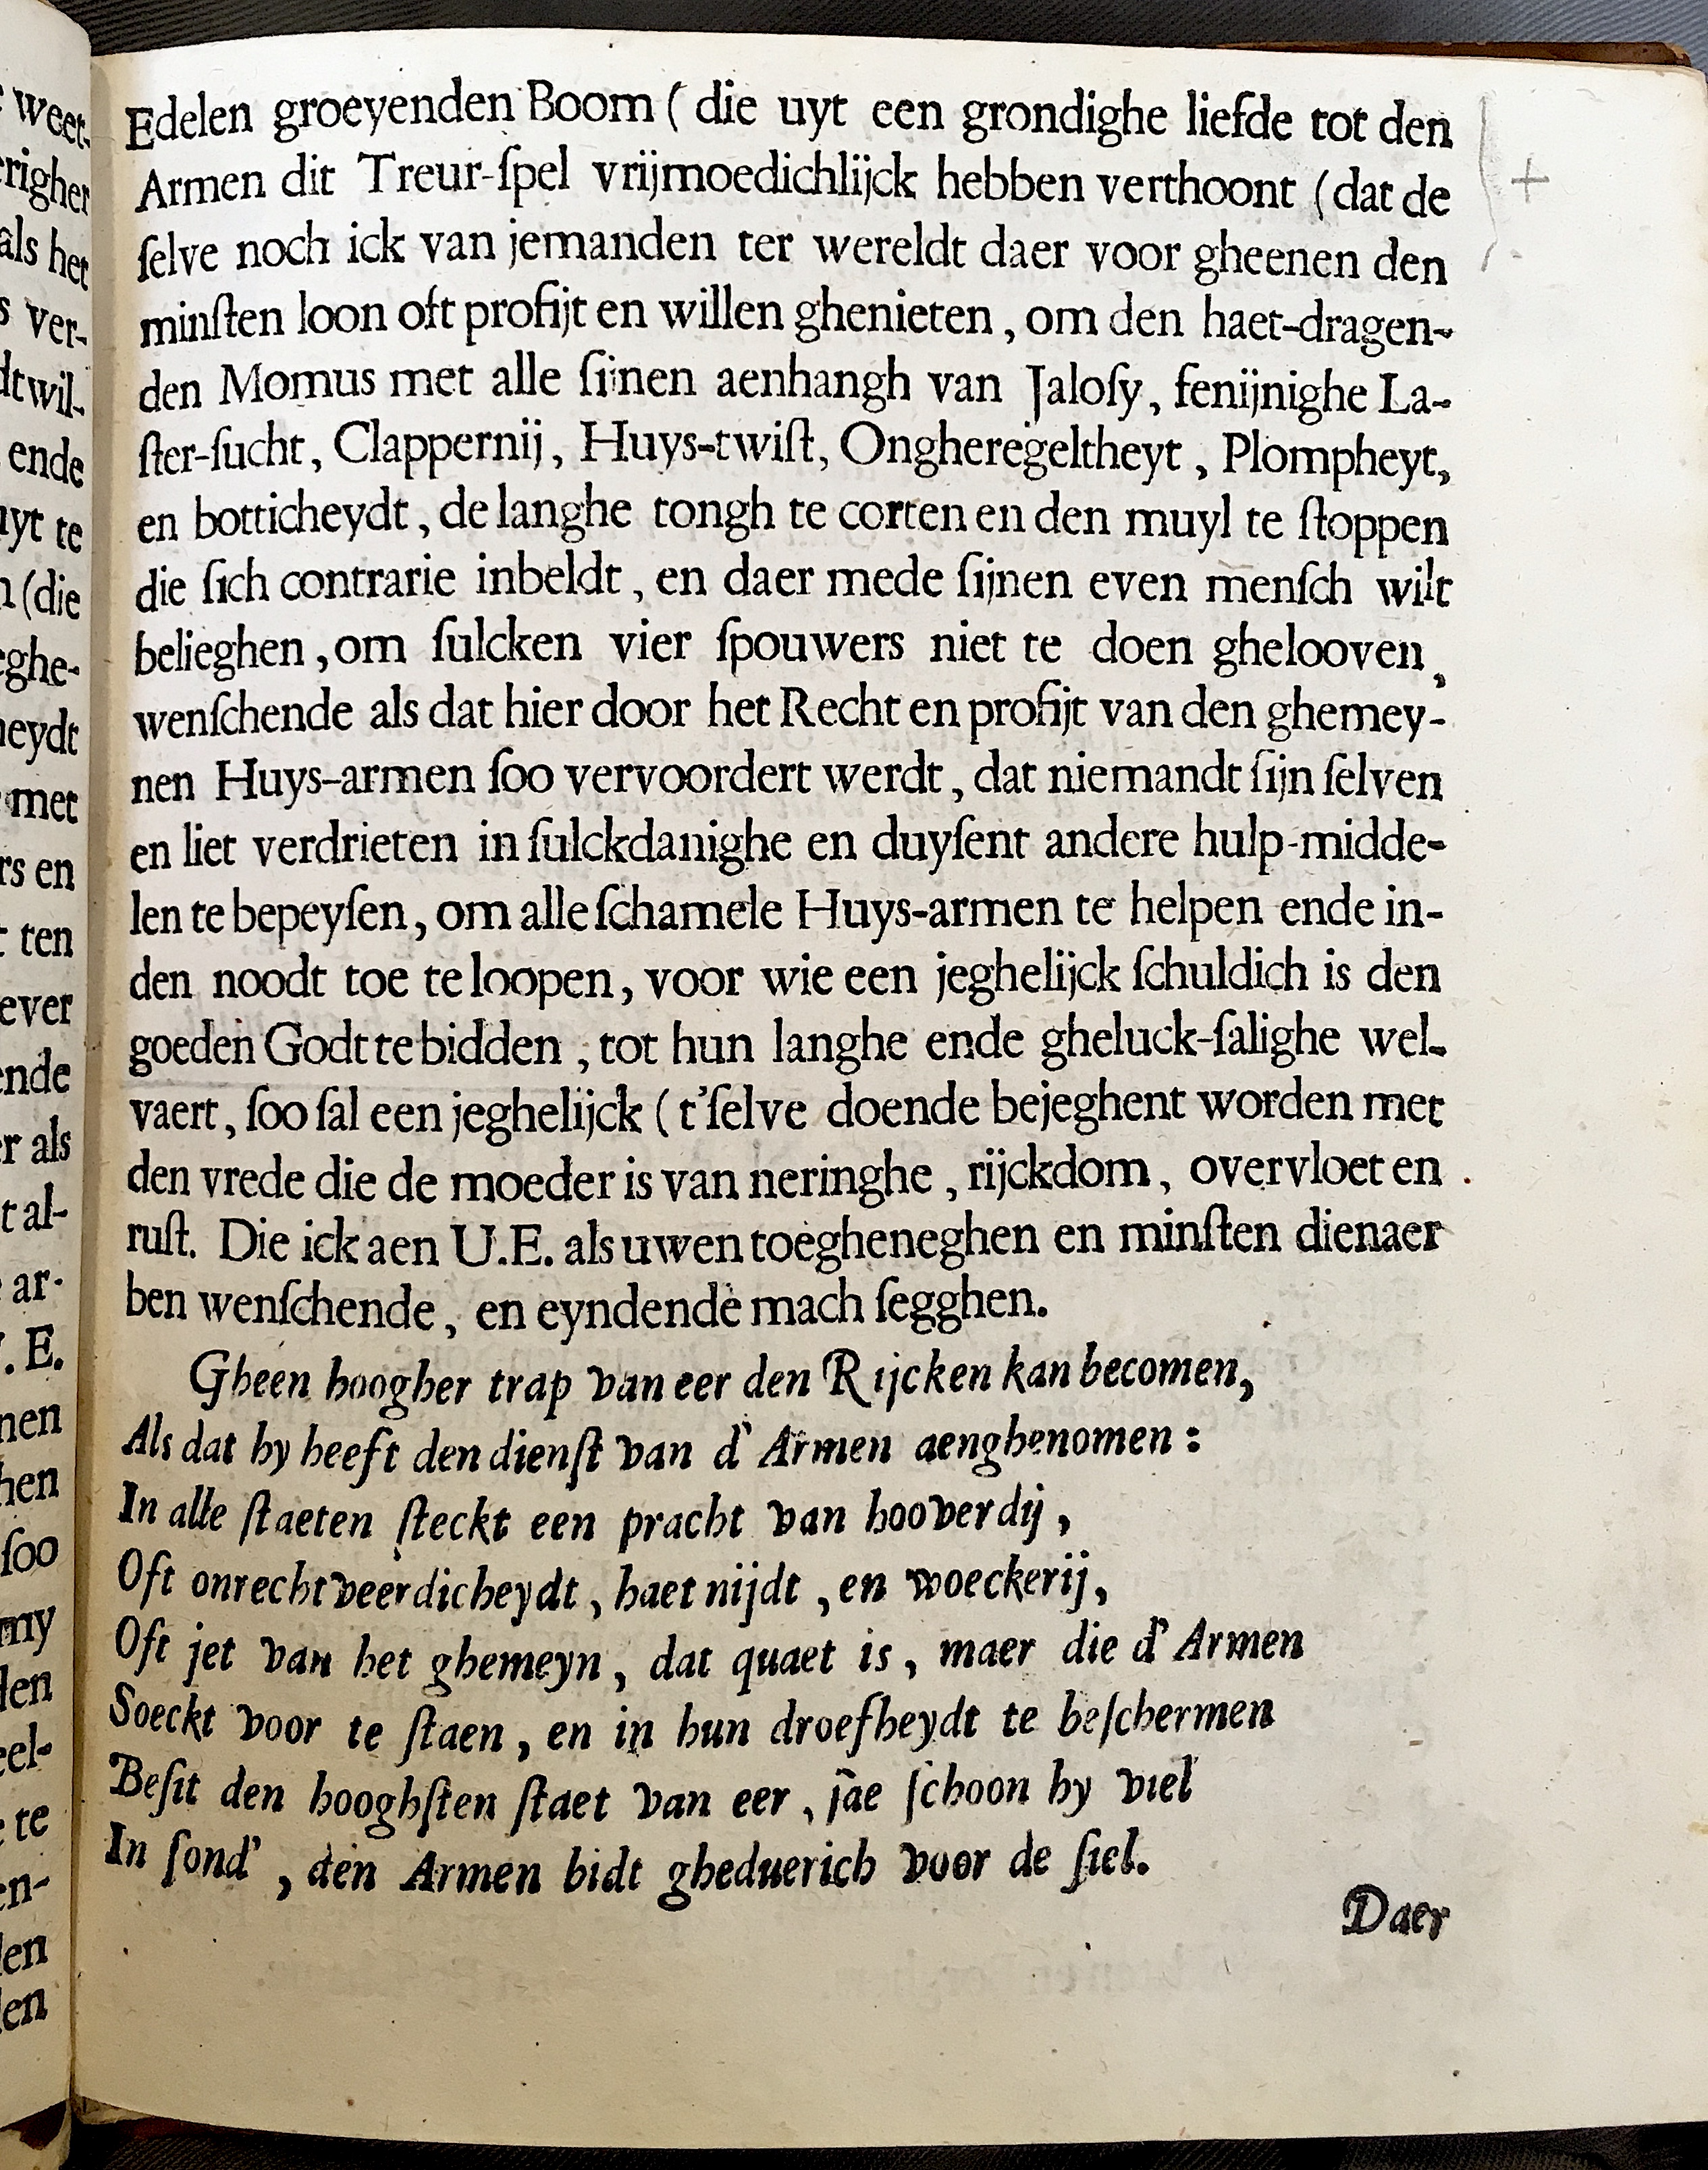 Edelen groeyenden Boom ( die uyt een grondighe liefde tot den
Armen dit Treur-ſpel vrijmoedichlijck hebben verthoont ( dat de
ſelve noch ick van jemanden ter wereldt daer voor gheenen den
minſten loon oft profijt en willen ghenieten, om den haet-dragen-
den Momus met alle ſijnen aenhangh van Jaloſy, fenijnighe La-
ſter-ſucht, Clappernij, Huys-twiſt, Ongheregeltheyt, Plompheyt,
en botticheydt, de langhe tongh te corten en den muyl te ſtoppen
die ſich contrarie inbeldt, en daer mede ſijnen even menſch wilt
belieghen, om ſulcken vier ſpouwers niet te doen ghelooven,
wenſchende als dat hier door het Recht en profijt van den ghemey-
nen Huys-armen ſoo vervoordert werdt, dat niemandt ſijn ſelven
en liet verdrieten in ſulckdanighe en duyſent andere hulp-midde-
len te bepeyſen, om alle ſchamele Huys-armen te helpen ende in-
den noodt toe te loopen, voor wie een jeghelijck ſchuldich is den
goeden Godt te bidden, tot hun langhe ende gheluck-ſalighe wel-
vaert, ſoo ſal een jeghelijck ( t'ſelve doende bejeghent worden met
den vrede die de moeder is van neringhe, rijckdom, overvloet en
ruſt. Die ick aen U.E. als uwen toegheneghen en minſten dienaer
ben wenſchende, en eyndende mach ſegghen.
Gheen hoogher trap van eer den Rijcken kan becomen,
Als dat hy heeft den dienſt van d'Armen aenghenomen:
In alle ſtaeten ſteckt een pracht van hooverdij,
Oft onrechtveerdicheydt, haet nijdt, en woeckerij,
Oft jet van het ghemeyn, dat quaet is, maer die d'Armen
Soeckt voor te ſtaen, en in hun droefheydt te beſchermen
Beſit den hooghſten ſtaet van eer, jae ſchoon hy viel
In ſond', den Armen bidt gheduerich voor de ſiel.
Daer
weet-
righer
als het
ver-
wil-
ende
uyt te
(die
ghe-
heydt
met
rs en
ten
ever
ende
als
al-
ar-
. E.
nen
hen
ſoo
my
den
eel-
te
en-
len
len